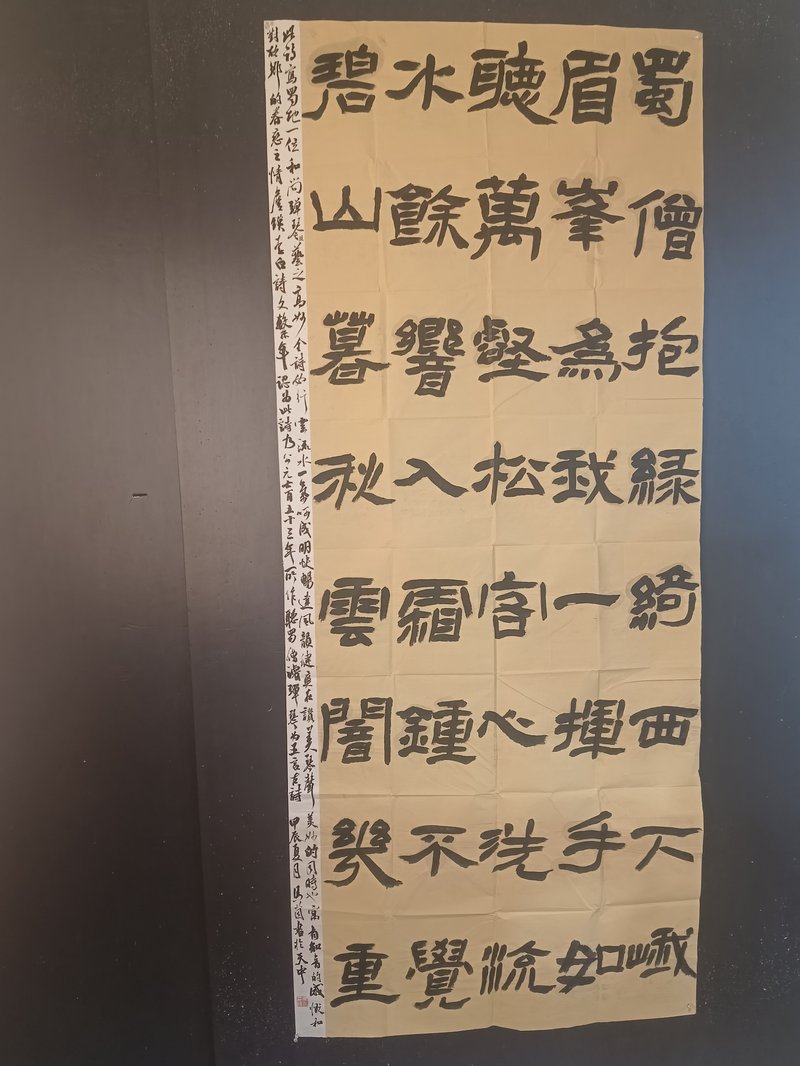 蜀僧抱緑綺西下峨
眉峯為我一揮手如
聽萬壑松客心洗流
水餘響入霜鍾不覺
碧山暮秋雲闇幾重
此詩寫蜀地一位和尚彈琴藝之高妙全詩如行雲流水一氣呵成明快暢達風韻健爽在讚美琴聲美妙的同時也寓有知音的感慨和
對故鄉的眷戀之情詹鍈李白詩文繫年認為此詩乃公元七百五十三年所作聽蜀僧濬彈琴為五言古詩甲辰夏月書於天中